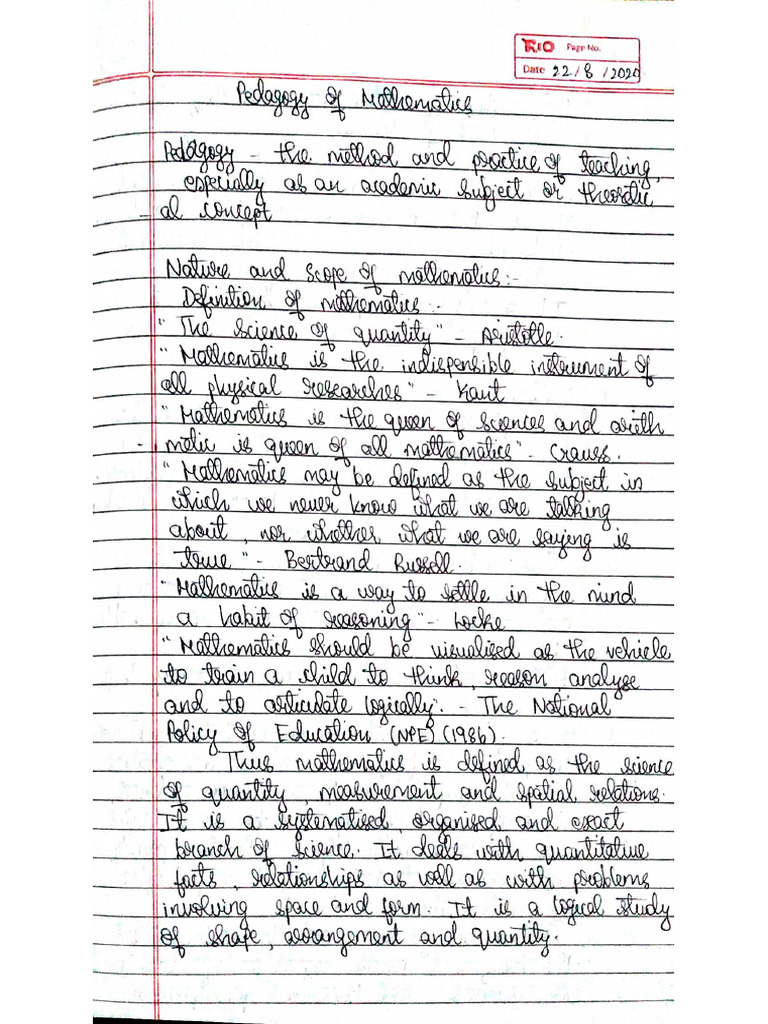 RIO Page No.
Date 22/8/2020
Pedagogy of Mathematics
Pedagogy - the method and practice of teaching,
especially as an academic subject or theoretic
- al concept
Nature and scope of mathematics:-
Definition of mathematics :-
"The science of quantity" - Aristotle.
"Mathematics is the indispensible instrument of
all physical researches" - Kant
"Mathematics is the queen of sciences and arith
- matic is queen of all mathematics" - Crauss.
"Mathematics may be defined as the subject in
which we never know what we are talking
about, nor whether what we are saying is
true" - Bertrand Russell.
"Mathematics is a way to settle in the mind
a habit of reasoning" - Locke
"Mathematics should be visualised as the vehicle
to train a child to think, reason analyse
and to articulate logically". - The National
Policy of Education (NPE) (1986).
Thus mathematics is defined as the science
of quantity, measurement and spatial relations.
It is a systematised, organised and exact
branch of science. It deals with quantitative
facts, relationships as well as with problems
involving space and form. It is a logical study
of shape, arrangement and quantity.